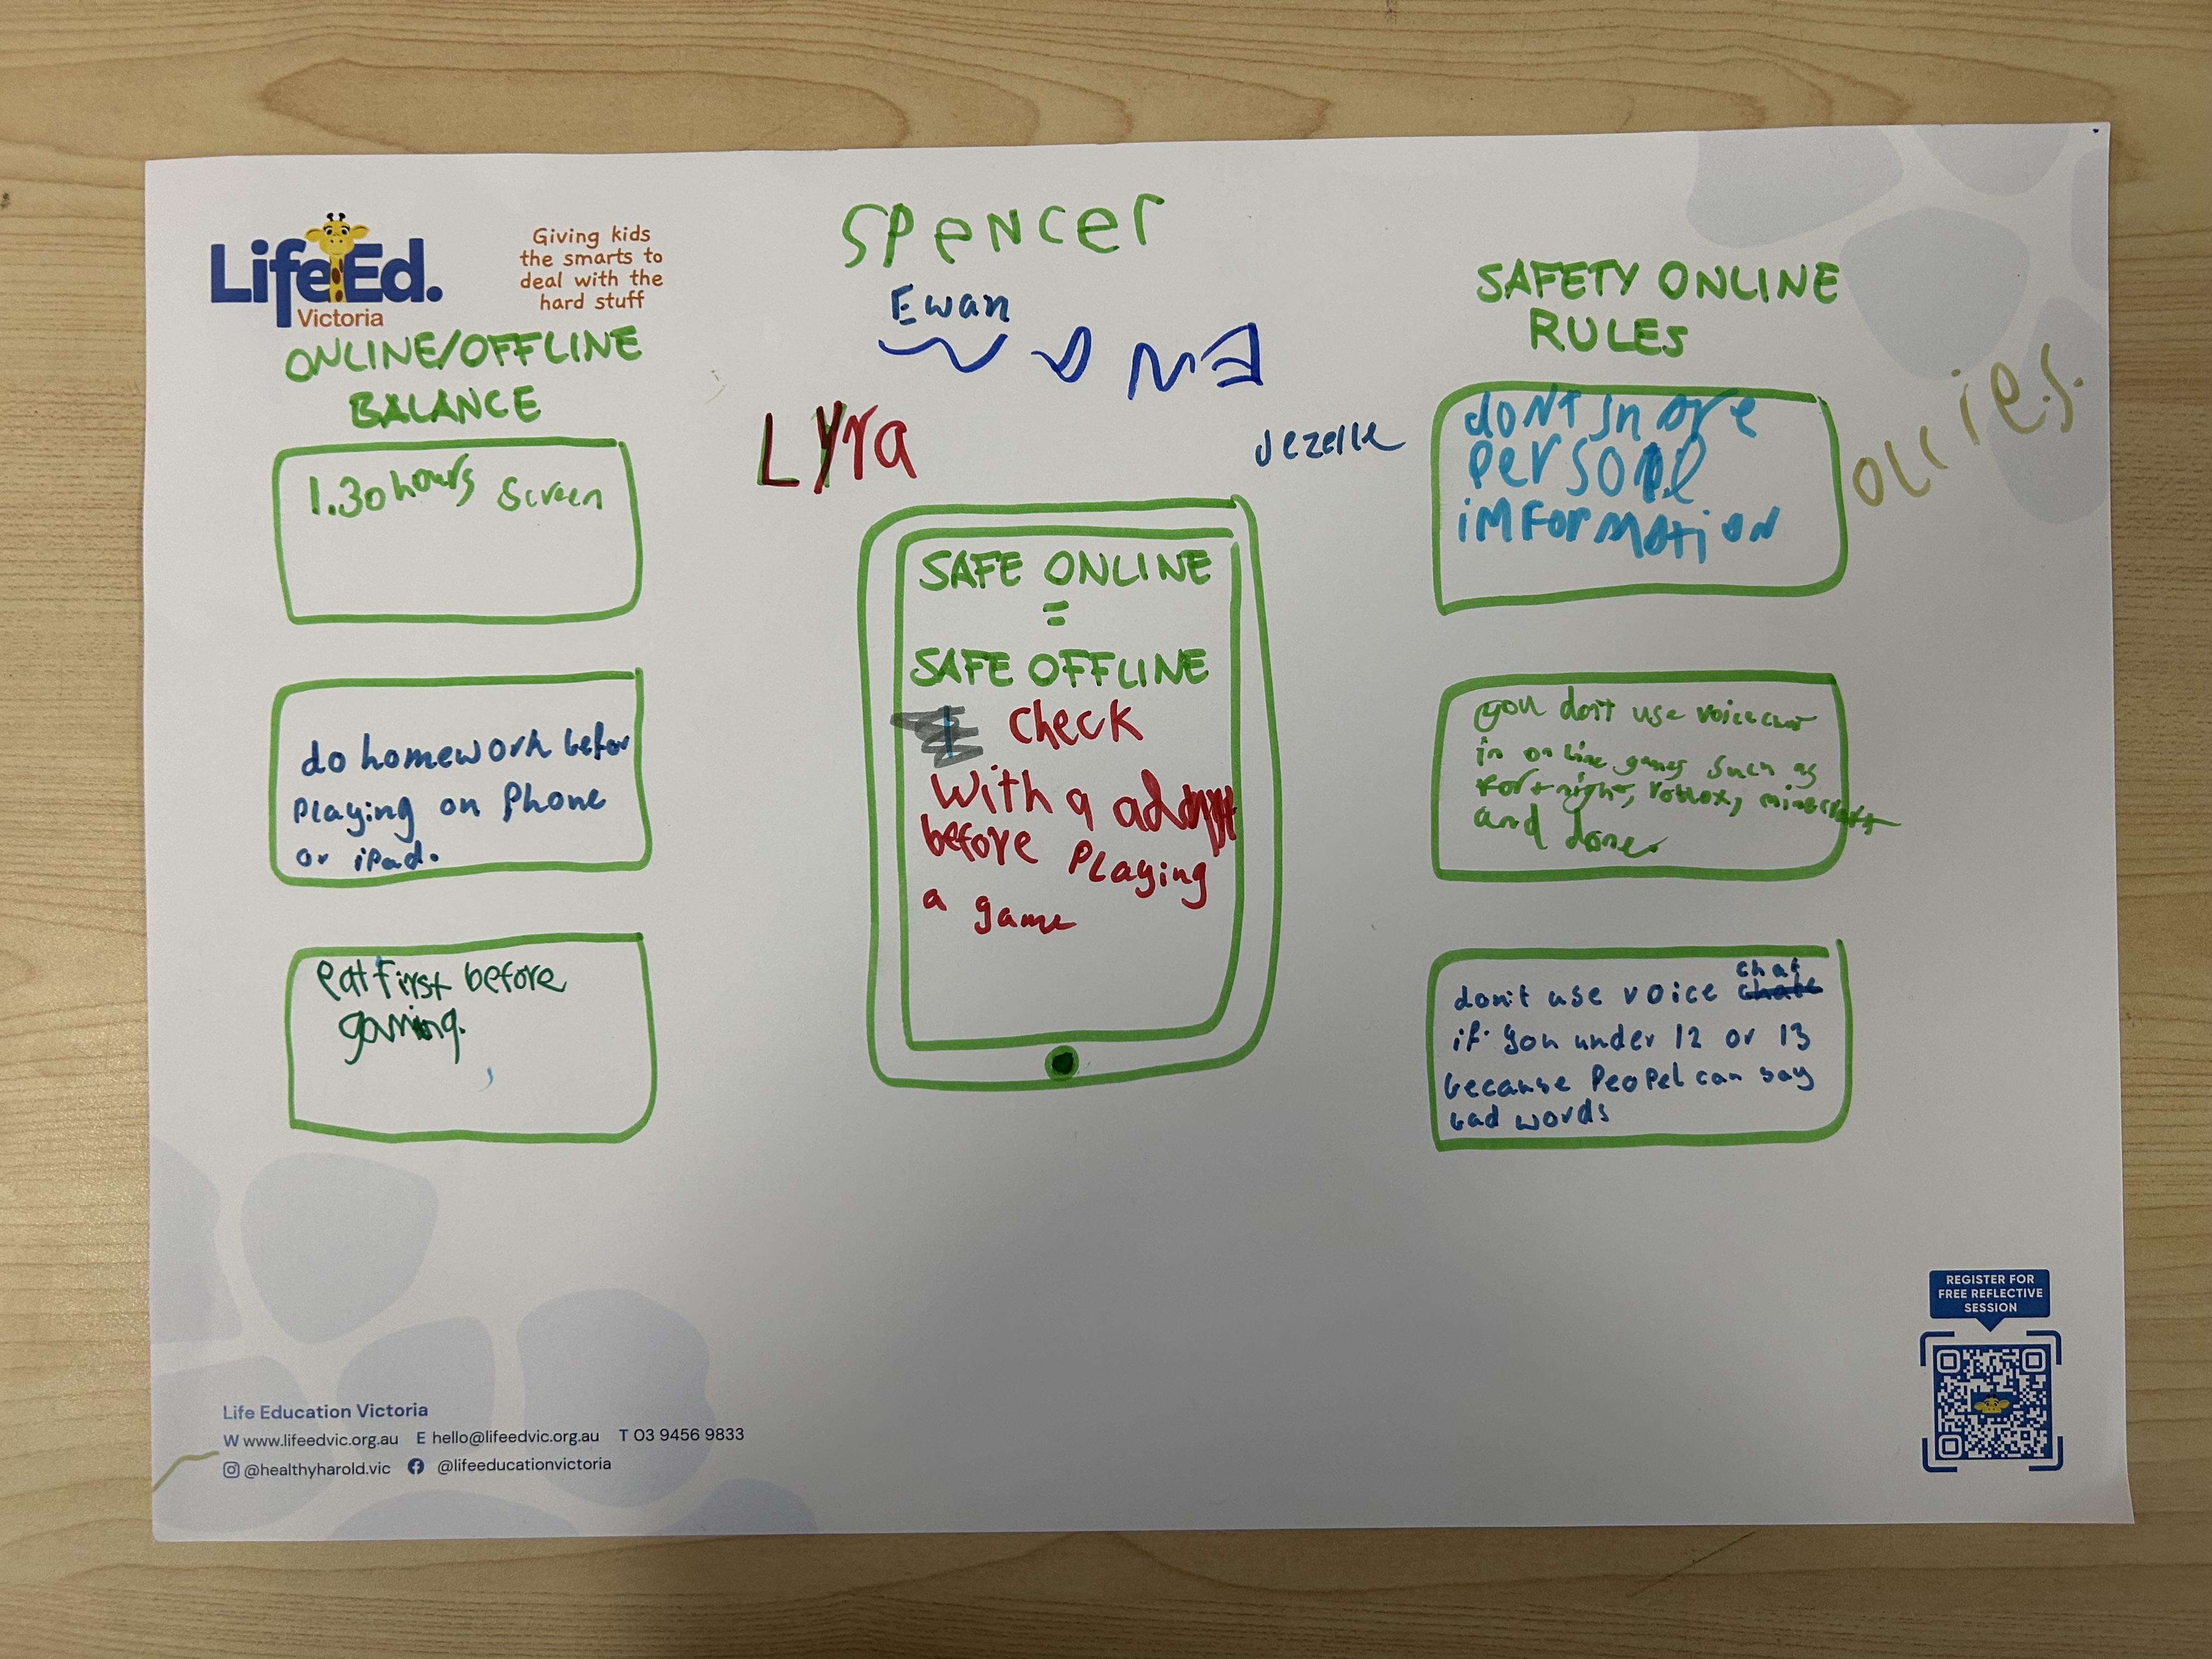 Life Ed.
Victoria
Giving kids
the smarts to
deal with the
hard stuff
Spencer
Ewan
Lyra
Jezelle
ollie.s.
ONLINE/OFFLINE
BALANCE
1.30 hours screen
do homework befor
playing on phone
or ipad.
eat first before
gaming.
SAFE ONLINE
=
SAFE OFFLINE
check
with a
before playing
a game
SAFETY ONLINE
RULES
dont
personl
imformation
you don't use voice chat
in online games such as
fortnight, roblox, minecraft
and done.
don't use voice chat
if you under 12 or 13
because peopel can say
bad words
Life Education Victoria
W www.lifeedvic.org.au E hello@lifeedvic.org.au T 03 9456 9833
@healthyharold.vic @lifeeducationvictoria
REGISTER FOR
FREE REFLECTIVE
SESSION